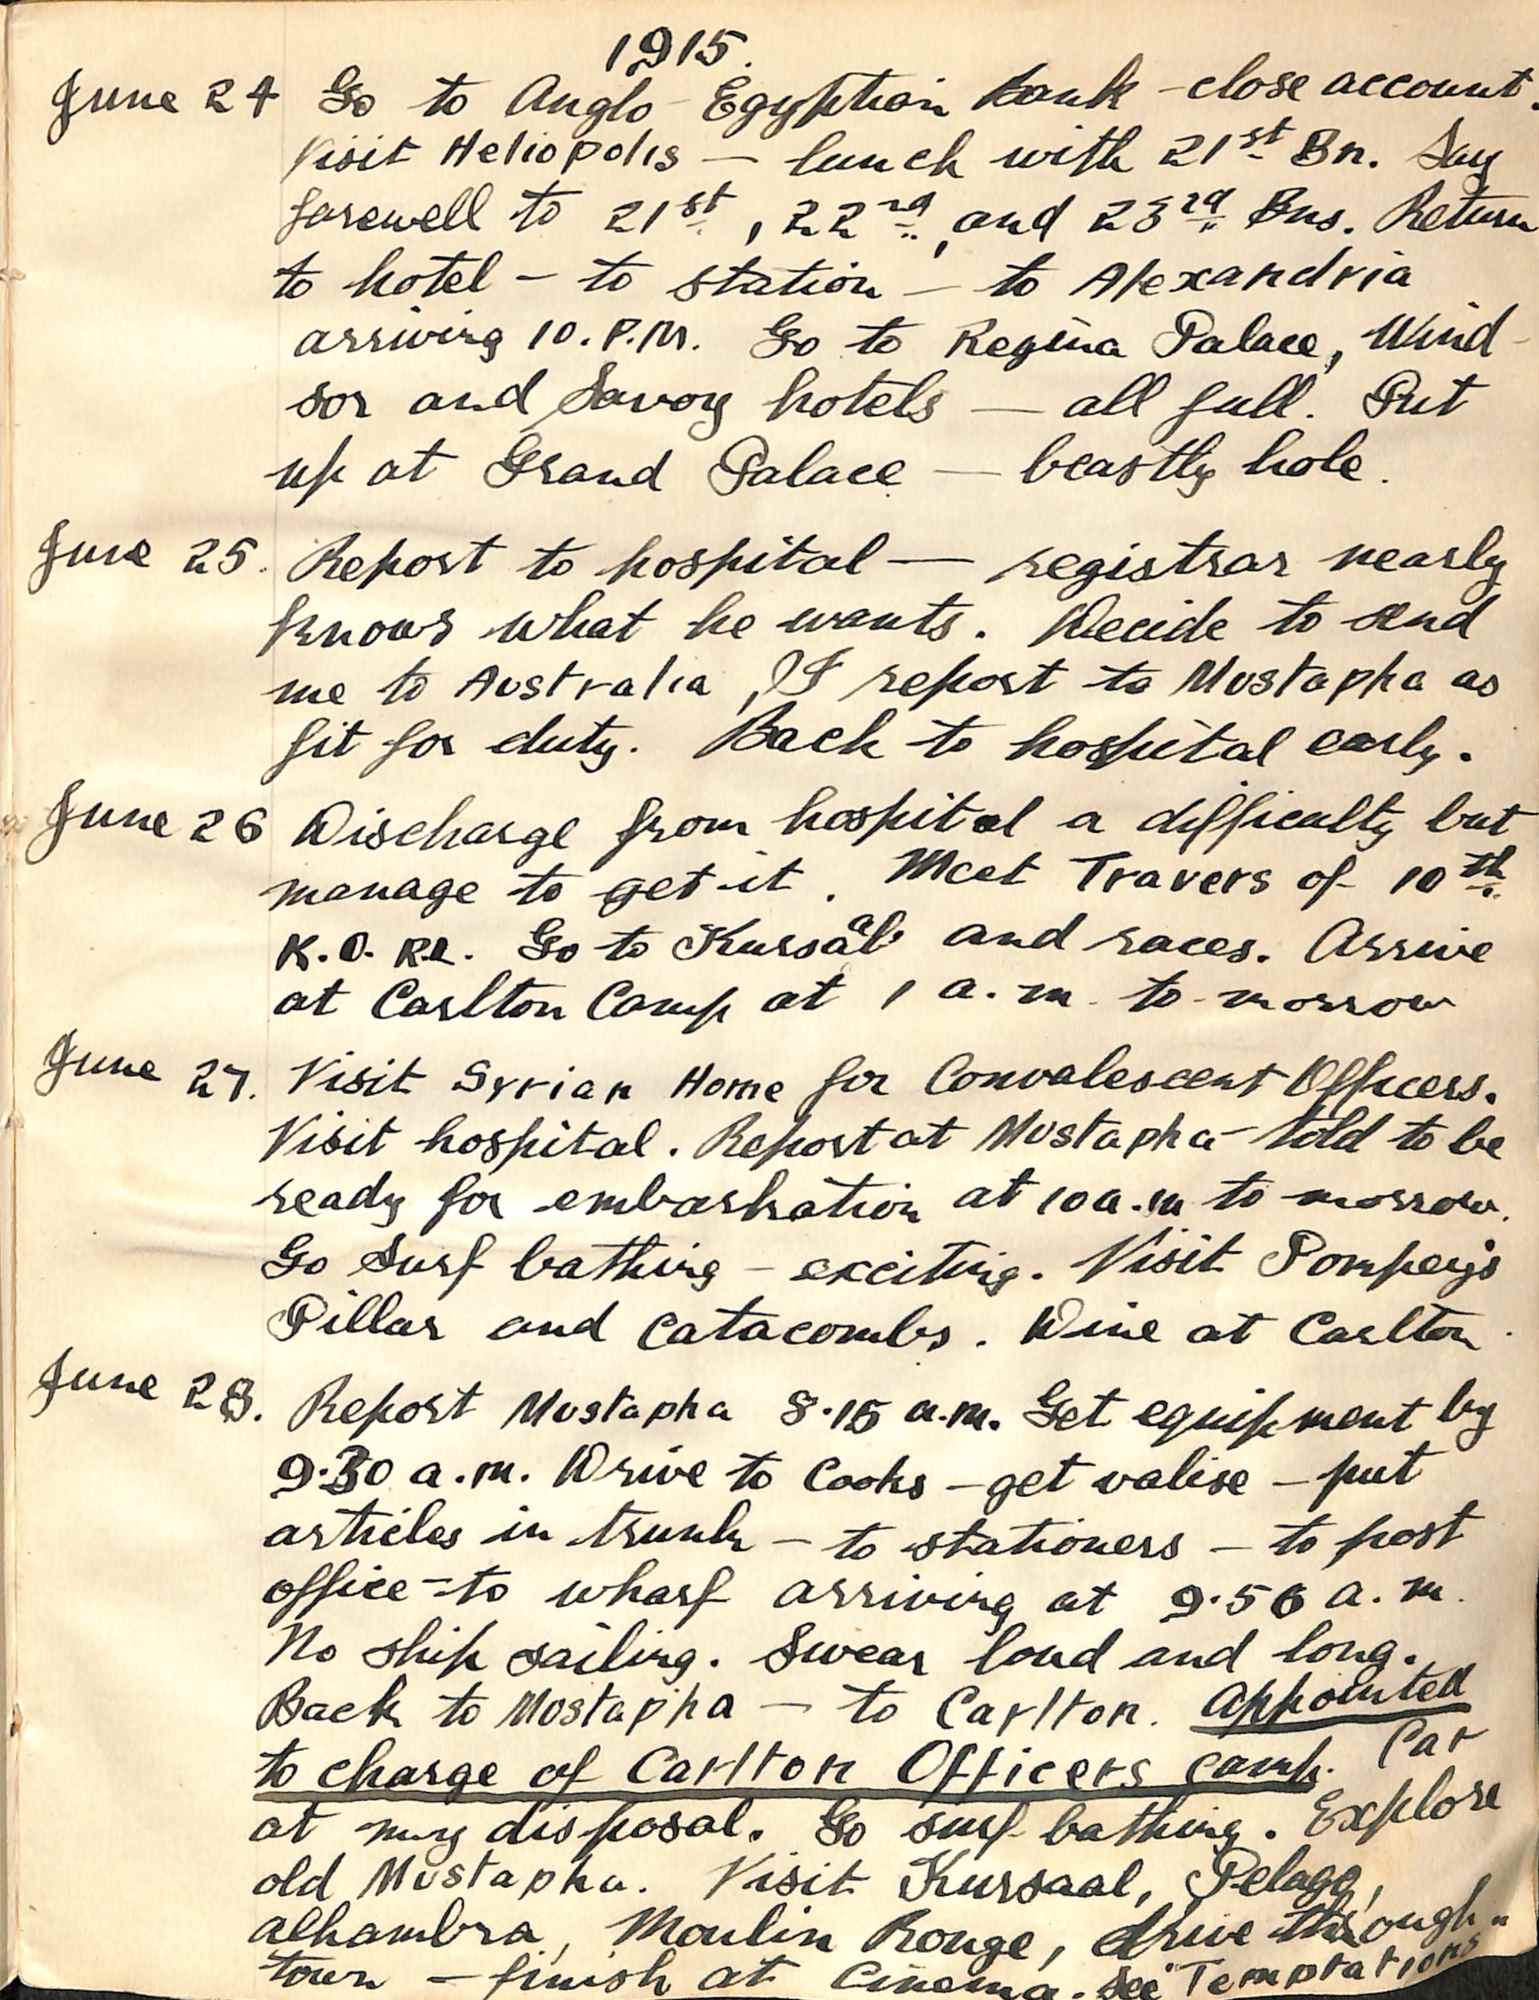 1915.
June 24 Go to Anglo-Egyptian Bank - close account.
Visit Heliopolis — lunch with 21st Bn. Say
farewell to 21st, 22nd, and 23rd Bns. Return
to hotel - to station - to Alexandria
arriving 10. P.M. Go to Regina Palace, Wind-
sor and Savoy hotels — all full. Put
up at Grand Palace — beastly hole.
June 25. Report to hospital — registrar nearly
knows what he wants. Decide to send
me to Australia, I report to Mustapha as
fit for duty. Back to hospital early.
June 26 Discharge from hospital a difficulty but
manage to get it. Meet Travers of 10th
K.O. R.L. Go to Kursaal and races. Arrive
at Carlton Camp at 1 a.m. to-morrow
June 27. Visit Syrian Home for Convalescent Officers.
Visit hospital. Report at Mustapha - told to be
ready for embarkation at 10 a.m to morrow.
Go Surf bathing - exciting. Visit Pompey's
Pillar and Catacombs. Dine at Carlton.
June 28. Report Mustapha 8.15 a.m. Get equipment by
9.30 a.m. Drive to Cooks - get valise - put
articles in trunk - to stationers - to post
office - to wharf arriving at 9.56 a.m.
No ship sailing. Swear loud and long.
Back to Mustapha - to Carlton. Appointed
to charge of Carlton Officers camp. Car
at my disposal. Go surf bathing. Explore
old Mustapha. Visit Kursaal, Pelago,
Alhambra, Moulin Rouge, drive through
town - finish at Cinema. See "Temptations"